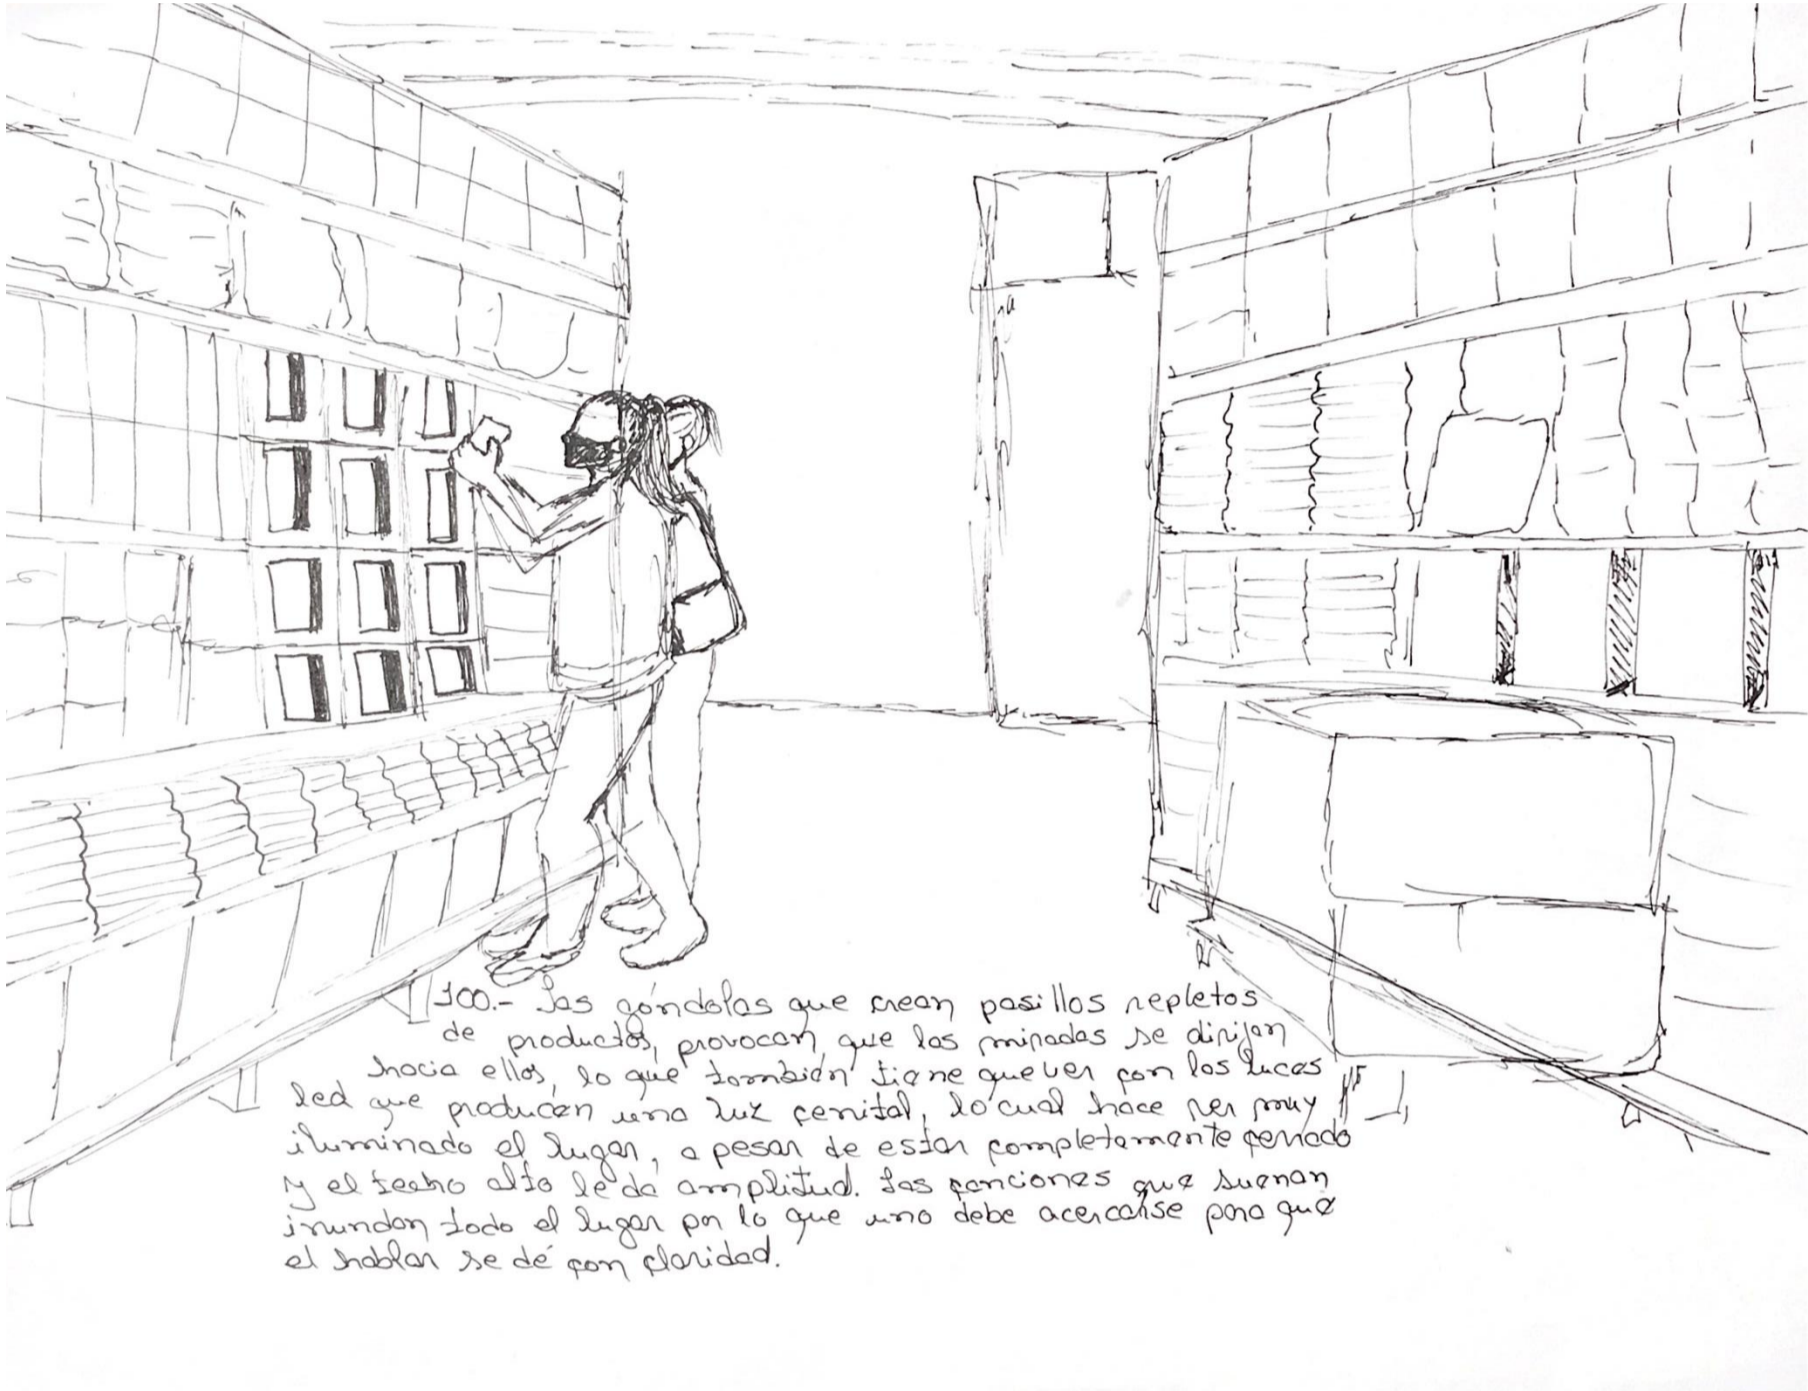 100.- Las góndolas que crean pasillos repletos
de productos, provocan, que las miradas se dirijan
hacia ellos, lo que también tiene que ver con las luces
led que producen una luz cenital, lo cual hace ver muy
iluminado el lugar, a pesar de estar completamente cerrado
y el techo alto le da amplitud. Las canciones que suenan
inundan todo el lugar por lo que uno debe acercarse para que
el hablar se dé con claridad.